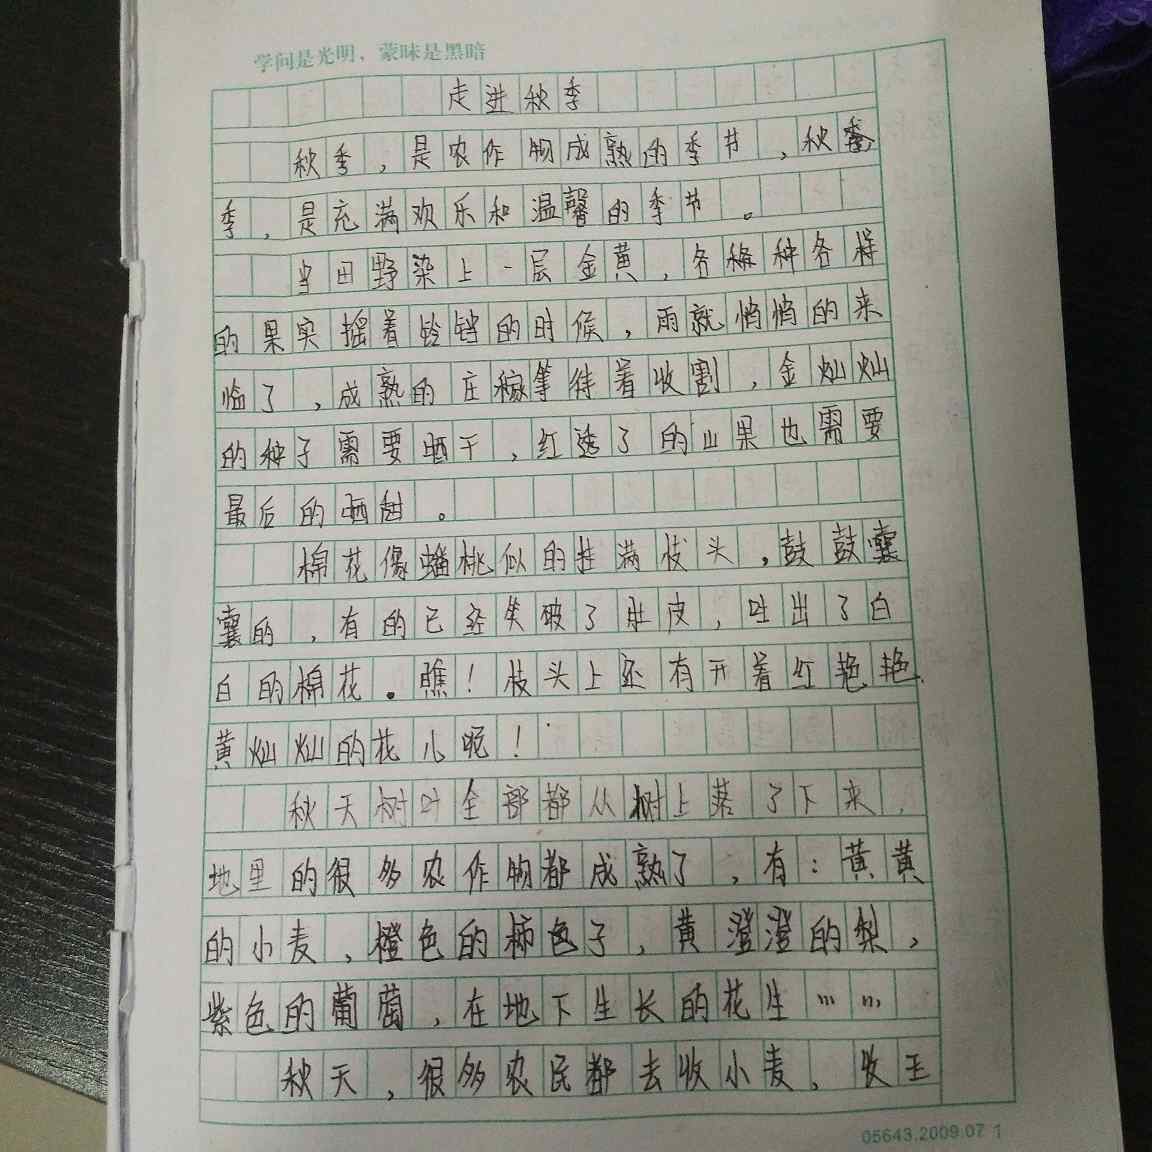 学问是光明，蒙昧是黑暗
走进秋季
秋季，是农作物成熟的季节，秋
季，是充满欢乐和温馨的季节。
当田野染上一层金黄，各种各样
的果实摇着铃铛的时候，雨就悄悄的来
临了，成熟的庄稼等待着收割，金灿灿
的种子需要晒干，红透了的山果也需要
最后的晒甜。
棉花像蟠桃似的挂满枝头，鼓鼓囊
囊的，有的已经失破了肚皮，吐出了白
白的棉花。瞧！枝头上还有开着红艳艳
黄灿灿的花儿呢！
秋天树叶全部都从树上落了下来，
地里的很多农作物都成熟了，有：黄黄
的小麦，橙色的柿色子，黄澄澄的梨，
紫色的葡萄，在地下生长的花生……
秋天，很多农民都去收小麦，收玉
05643.2009.07 1